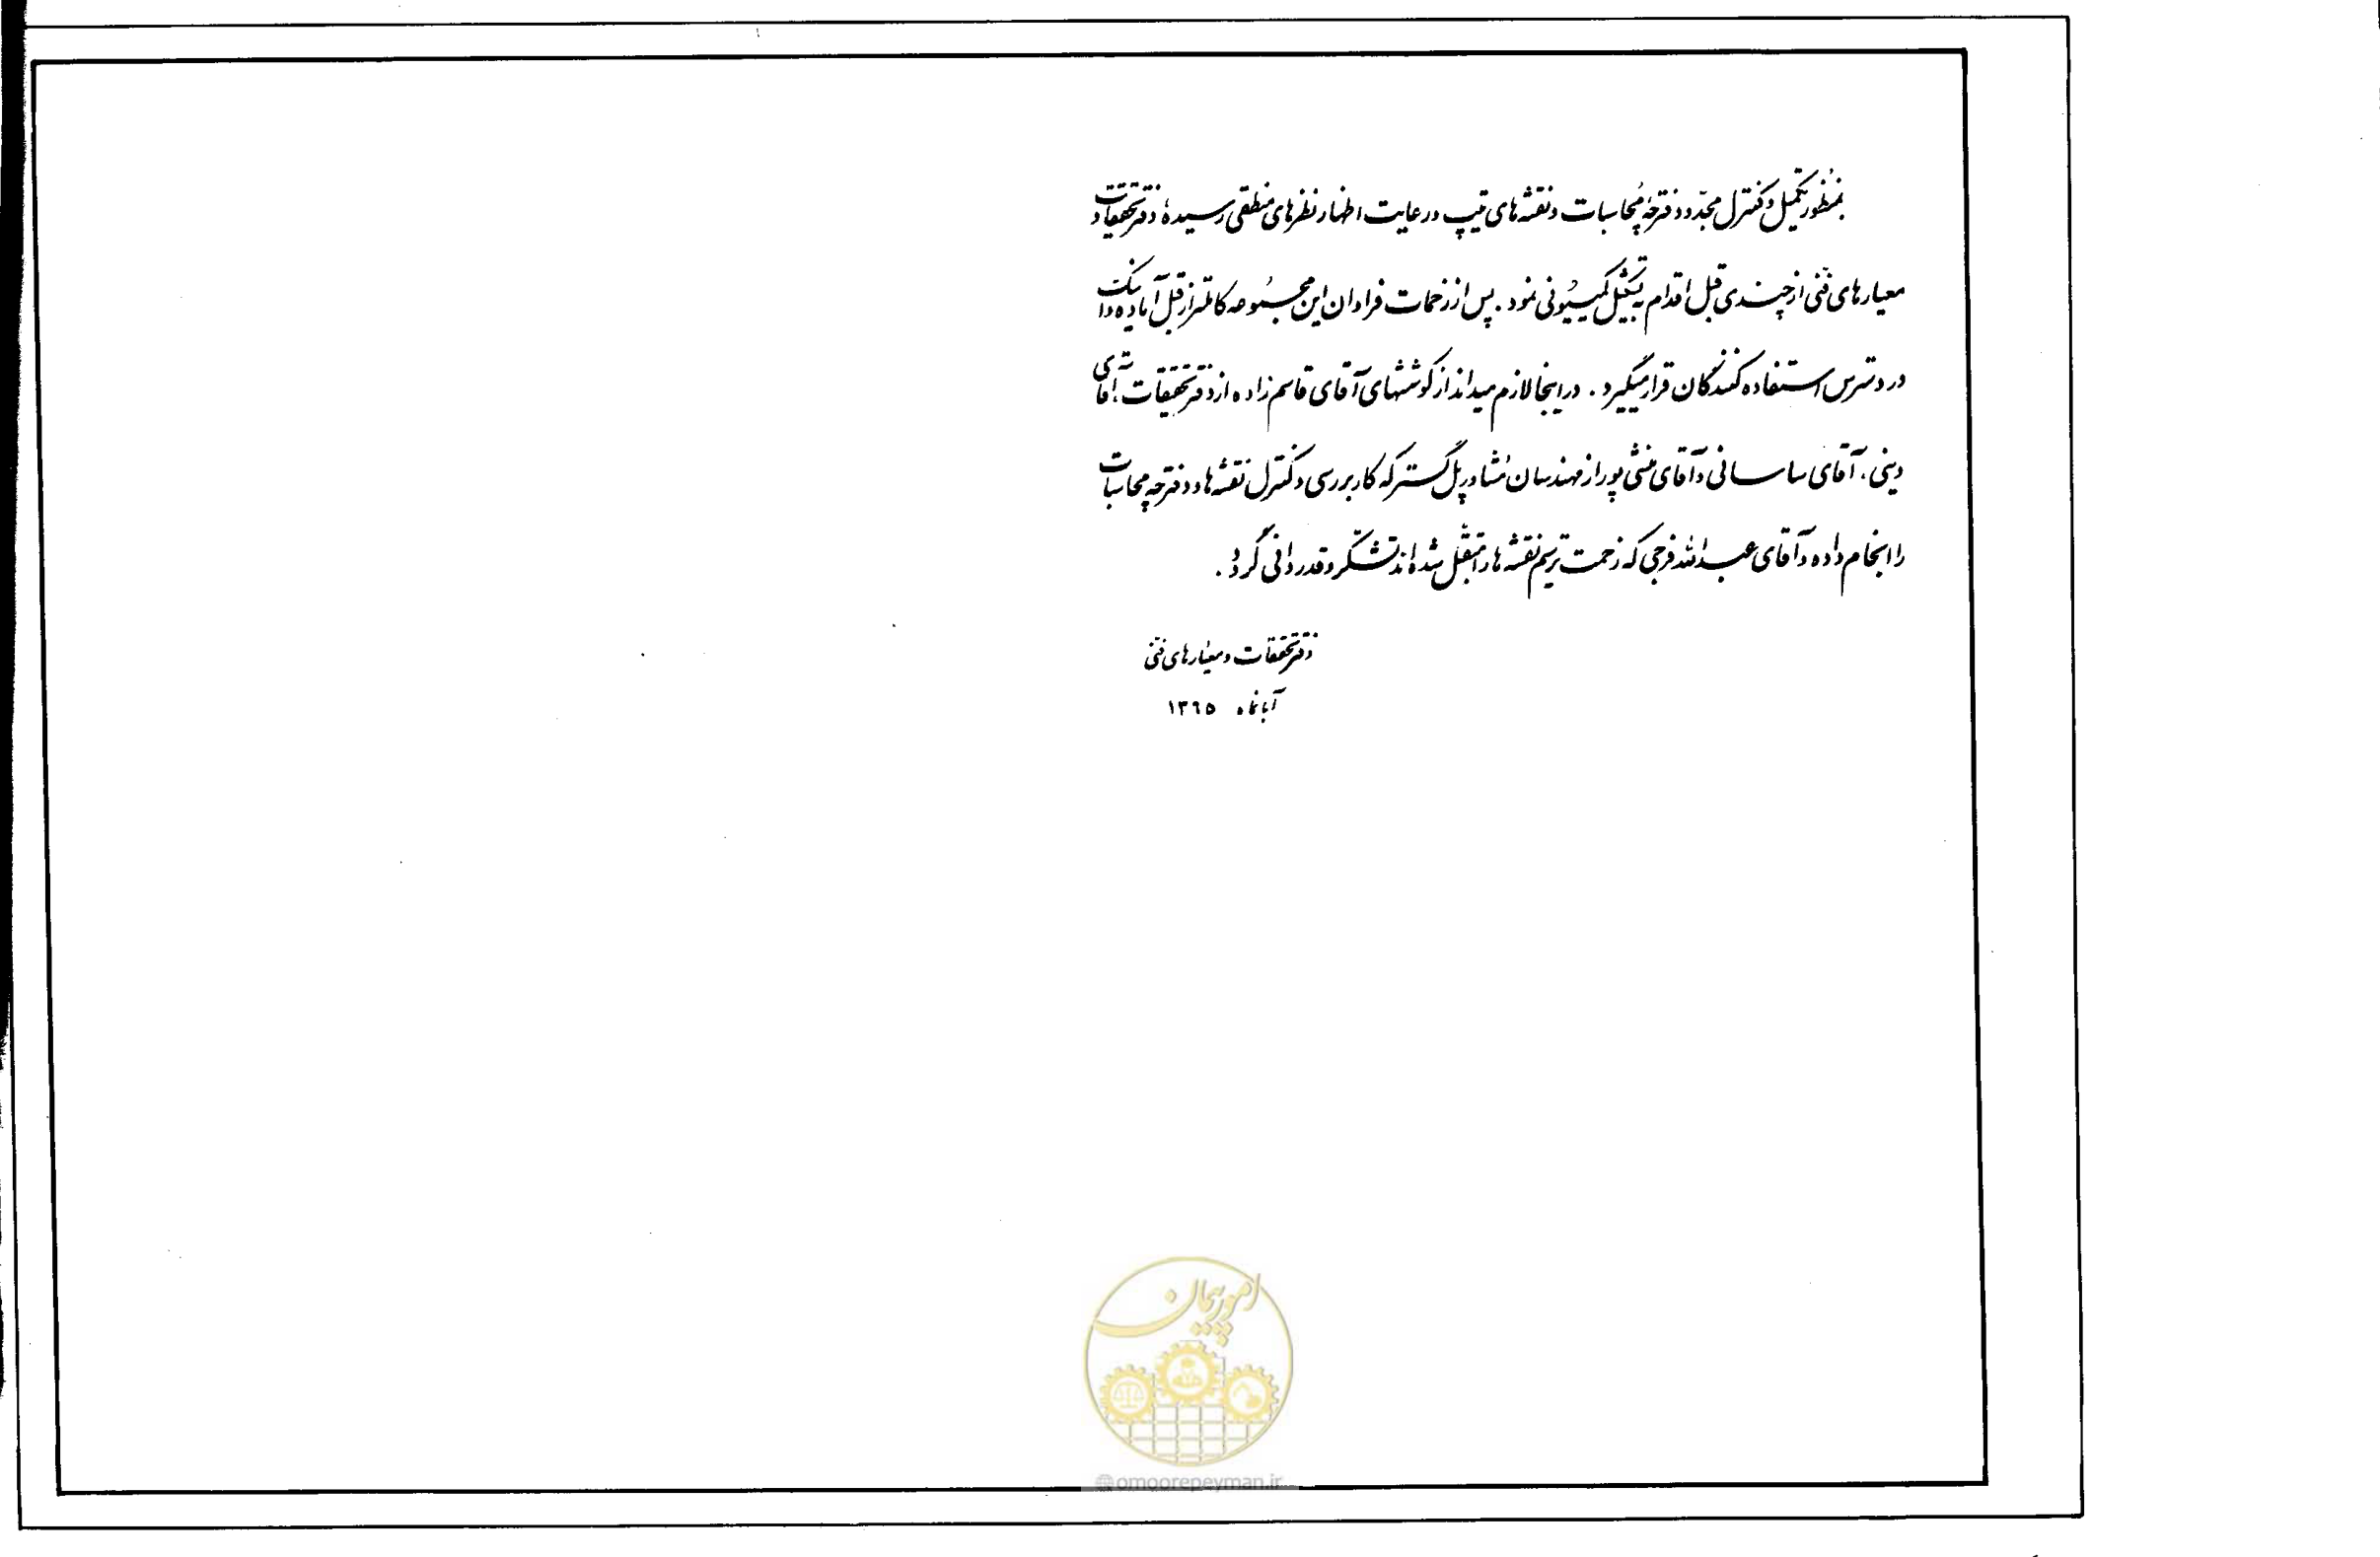 بمنظور تکمیل و کنترل مجدد دفترچه محاسبات و نقشه های تیپ و رعایت اظهار نظرهای منطقی رسیده دفتر تحقیقات و
معیارهای فنی از چندی قبل اقدام به تشکیل کمیسیونی نمود . پس از زحمات فراوان این مجموعه کاملتر از قبل آماده و اینک
در دسترس استفاده کنندگان قرار میگیرد . در اینجا لازم میداند از کوششهای آقای قاسم زاده از دفتر تحقیقات ، آقای
دینی ، آقای ساسانی و آقای منشی پور از مهندسان مشاور پل گستر که کار بررسی و کنترل نقشه ها و دفترچه محاسبات
را انجام داده و آقای عبدالله فرجی که زحمت ترسیم نقشه ها را متقبل شده اند تشکر و قدردانی گردد .
دفتر تحقیقات و معیارهای فنی
آبانماه ۱۳۶۵
امور پیمان
omoorepeyman.ir